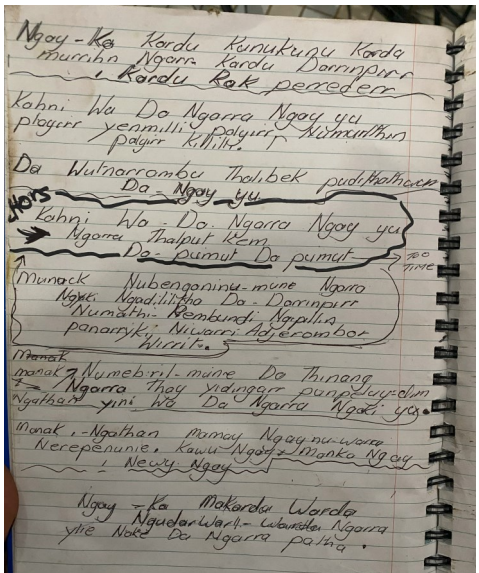 Ngay-Ka Kardu Kunukunu Karda
murrinh Ngarra Kardu Darrinpirr
! Kardu Rak perrederr
Kahni Wa Da Ngarra Ngay yu
playirr yenmilli palyirr Nimarthin
palyirr killili.
Da Wutnarrombu Thalibek pudithatharin
Da-Ngay yu
Kahni Wa-Da. Ngarra Ngay yu
Ngarra Thalput Kem
Da-pumut Da pumut
Too
TIME
Munack Nubenganinu-mune Ngarra
Ngaki Ngadililtha Da-Darrinpirr
Numathi Rembundi Ngipilin
panarryki Niwarri Adjerombor
Wirrit.
manak
manak Numebiril-mune Da Thinang
Ngarra Thay yidingarr punpeluy-dim
Ngathan yini Wa Da Ngarra Ngaki yu.
Manak.-Ngathan mamay Ngay-nu-warra
Nerepenunie. Kawu-Ngay Manka Ngay
! Newy-Ngay
Ngay-Ka Makardu Warda
Ngudar Wart-Warda Ngarra
yile Nake Da Ngarra patha.